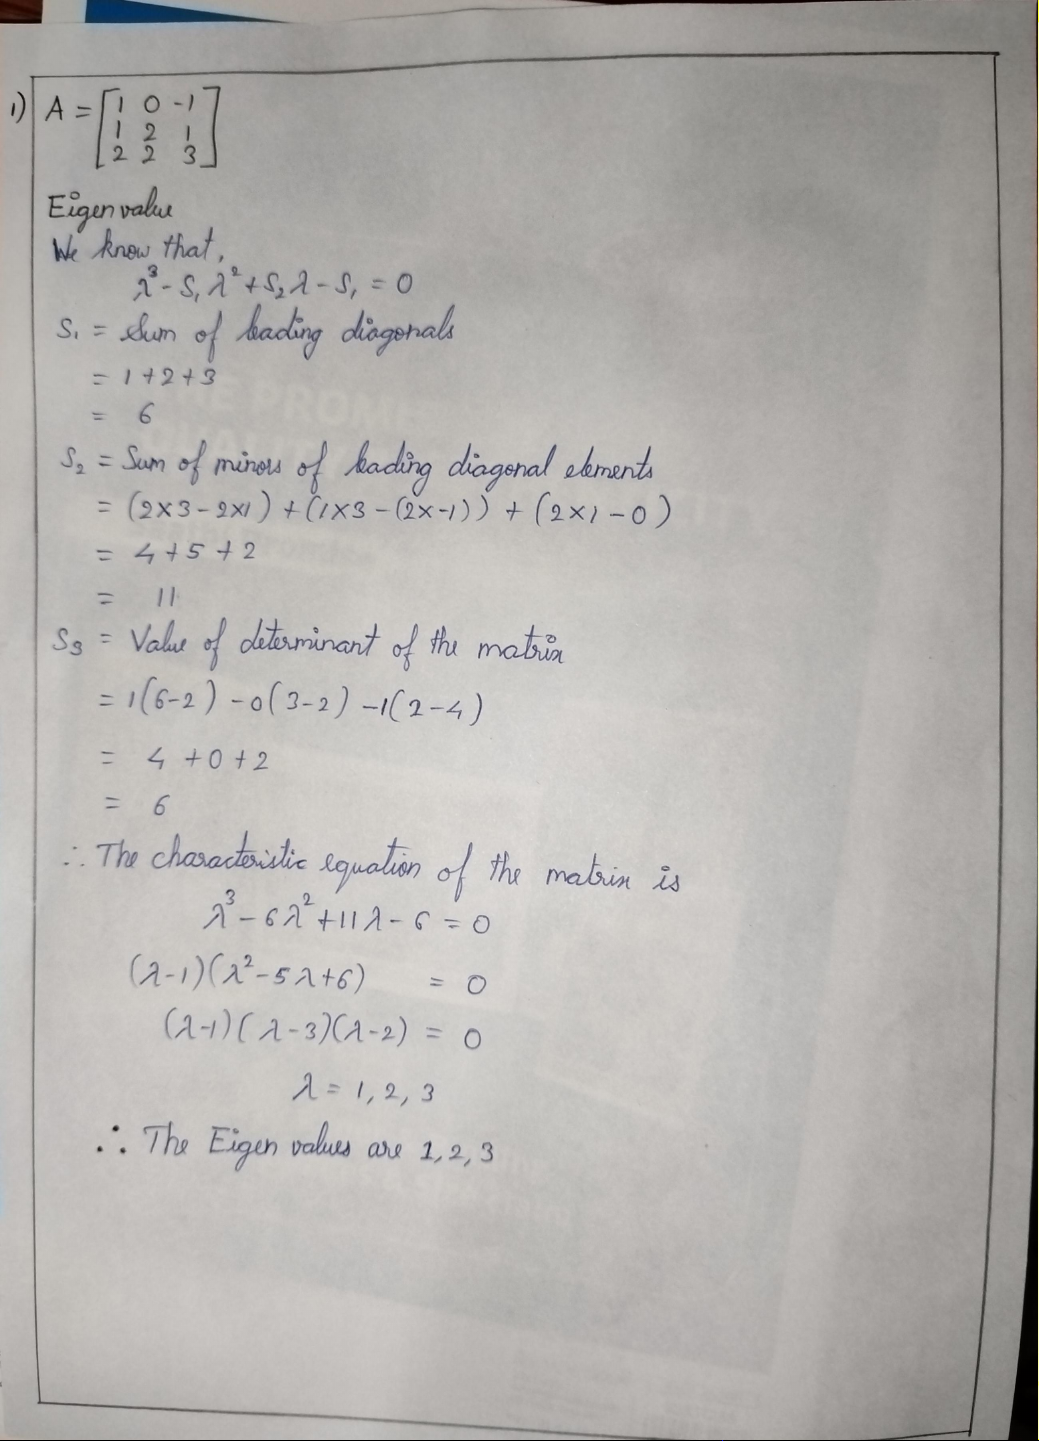 1) A = [1 0 -1
1 2 1
2 2 3]
Eigen value
We know that,
λ³ - S₁ λ² + S₂ λ - S₁ = 0
S₁ = Sum of leading diagonals
= 1 + 2 + 3
= 6
S₂ = Sum of minors of leading diagonal elements
= (2×3 - 2×1) + (1×3 - (2×-1)) + (2×1 - 0)
= 4 + 5 + 2
= 11
S₃ = Value of determinant of the matrix
= 1(6-2) - 0(3-2) - 1(2-4)
= 4 + 0 + 2
= 6
∴ The characteristic equation of the matrix is
λ³ - 6λ² + 11λ - 6 = 0
(λ-1)(λ² - 5λ + 6) = 0
(λ-1)(λ-3)(λ-2) = 0
λ = 1, 2, 3
∴ The Eigen values are 1, 2, 3